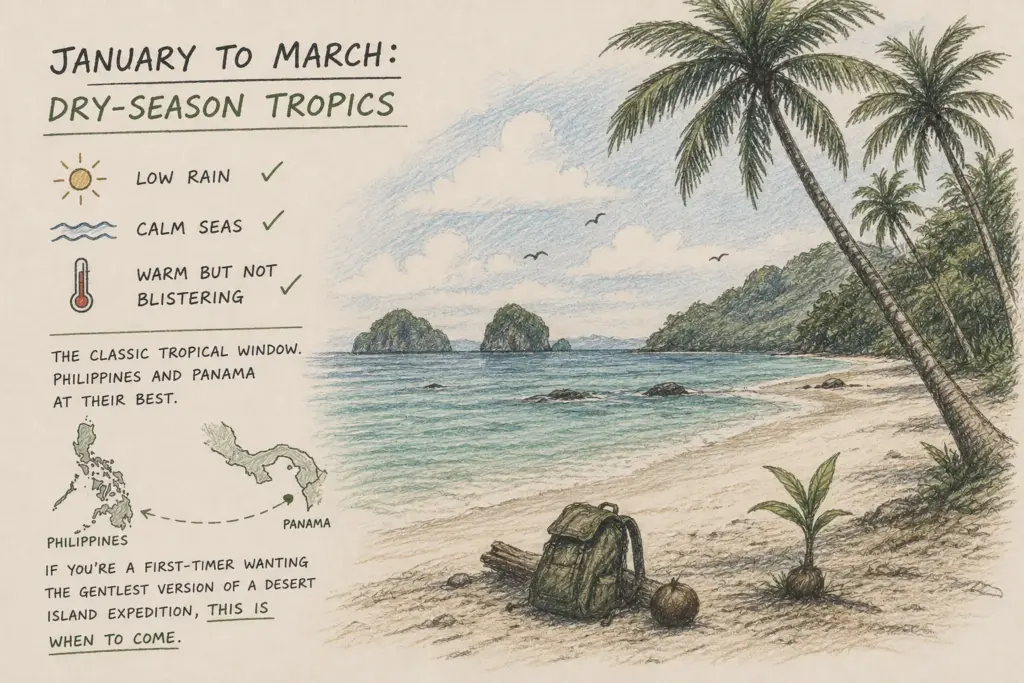 JANUARY TO MARCH:
DRY-SEASON TROPICS
LOW RAIN ✓
CALM SEAS ✓
WARM BUT NOT
BLISTERING ✓
THE CLASSIC TROPICAL WINDOW.
PHILIPPINES AND PANAMA
AT THEIR BEST.
PHILIPPINES
PANAMA
IF YOU'RE A FIRST-TIMER WANTING
THE GENTLEST VERSION OF A DESERT
ISLAND EXPEDITION, THIS IS
WHEN TO COME.